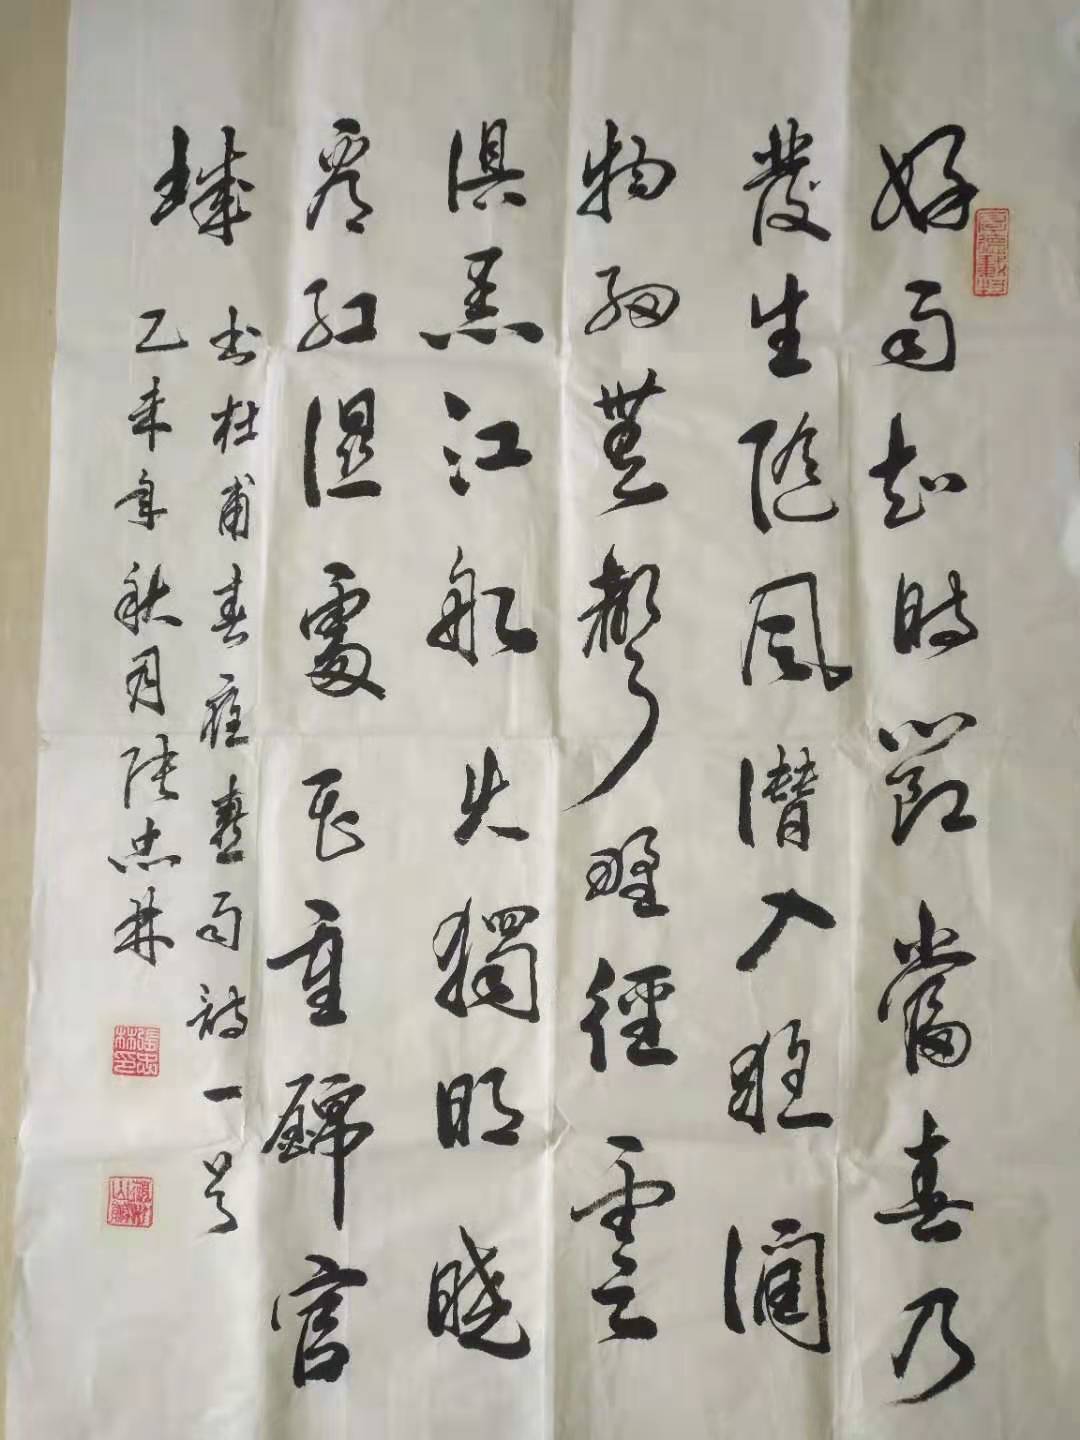 厚德載物
好雨知時節當春乃
發生隨風潛入夜潤
物細無聲野徑雲
俱黑江船火獨明曉
看紅濕處花重錦官
城
書杜甫春夜喜雨詩一首
乙未年秋月張忠林
張忠林印